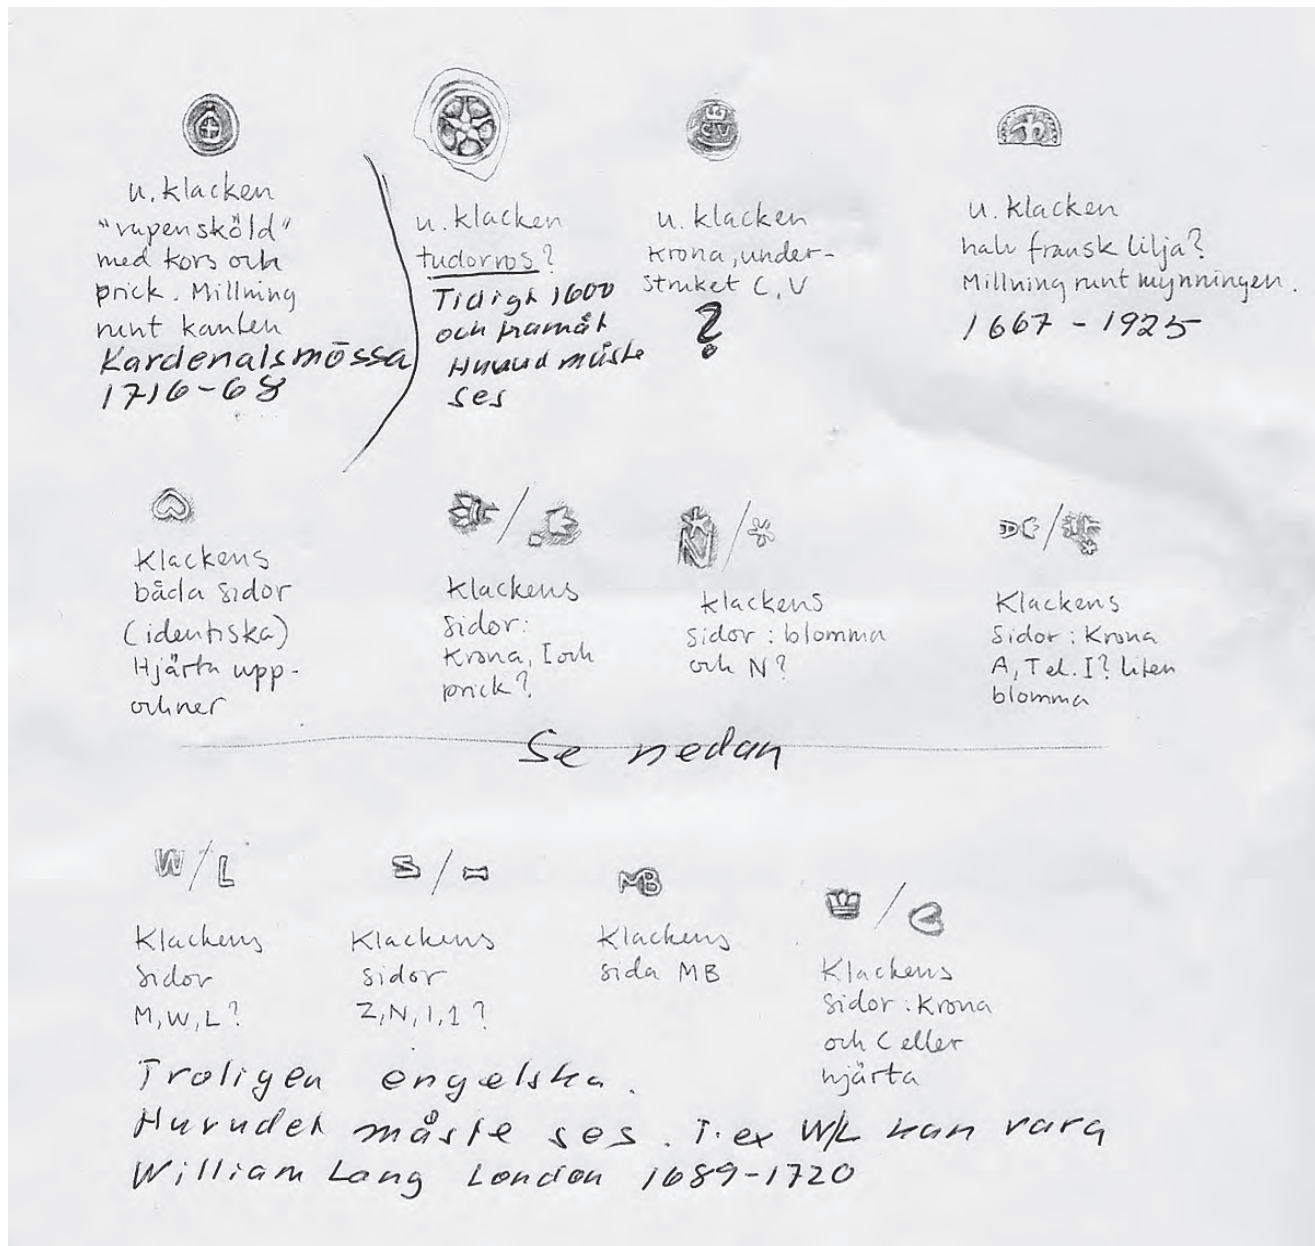 CV
u. klacken
"vapensköld"
med kors och
prick. Millning
runt kanten
Kardenalsmössa
1716-68
u. klacken
tudorros?
Tidigt 1600
och framåt
Huvud måste
ses
u. klacken
krona, under-
struket C, V
?
u. klacken
halv fransk lilja?
Millning runt mynningen.
1667 - 1925
Klackens
båda sidor
(identiska)
Hjärta upp-
ochner
/
Klackens
sidor:
Krona, I och
prick?
N / 
klackens
sidor: blomma
och N?
/
Klackens
sidor: Krona
A, T el. I? liten
blomma
Se nedan
W/L
Klackens
sidor
M, W, L?
S /
Klackens
sidor
Z, N, I, 1?
MB
Klackens
sida MB
/
Klackens
sidor: Krona
och C eller
hjärta
Troligen engelska.
Huvudet måste ses. T.ex W/L kan vara
William Lang London 1689-1720